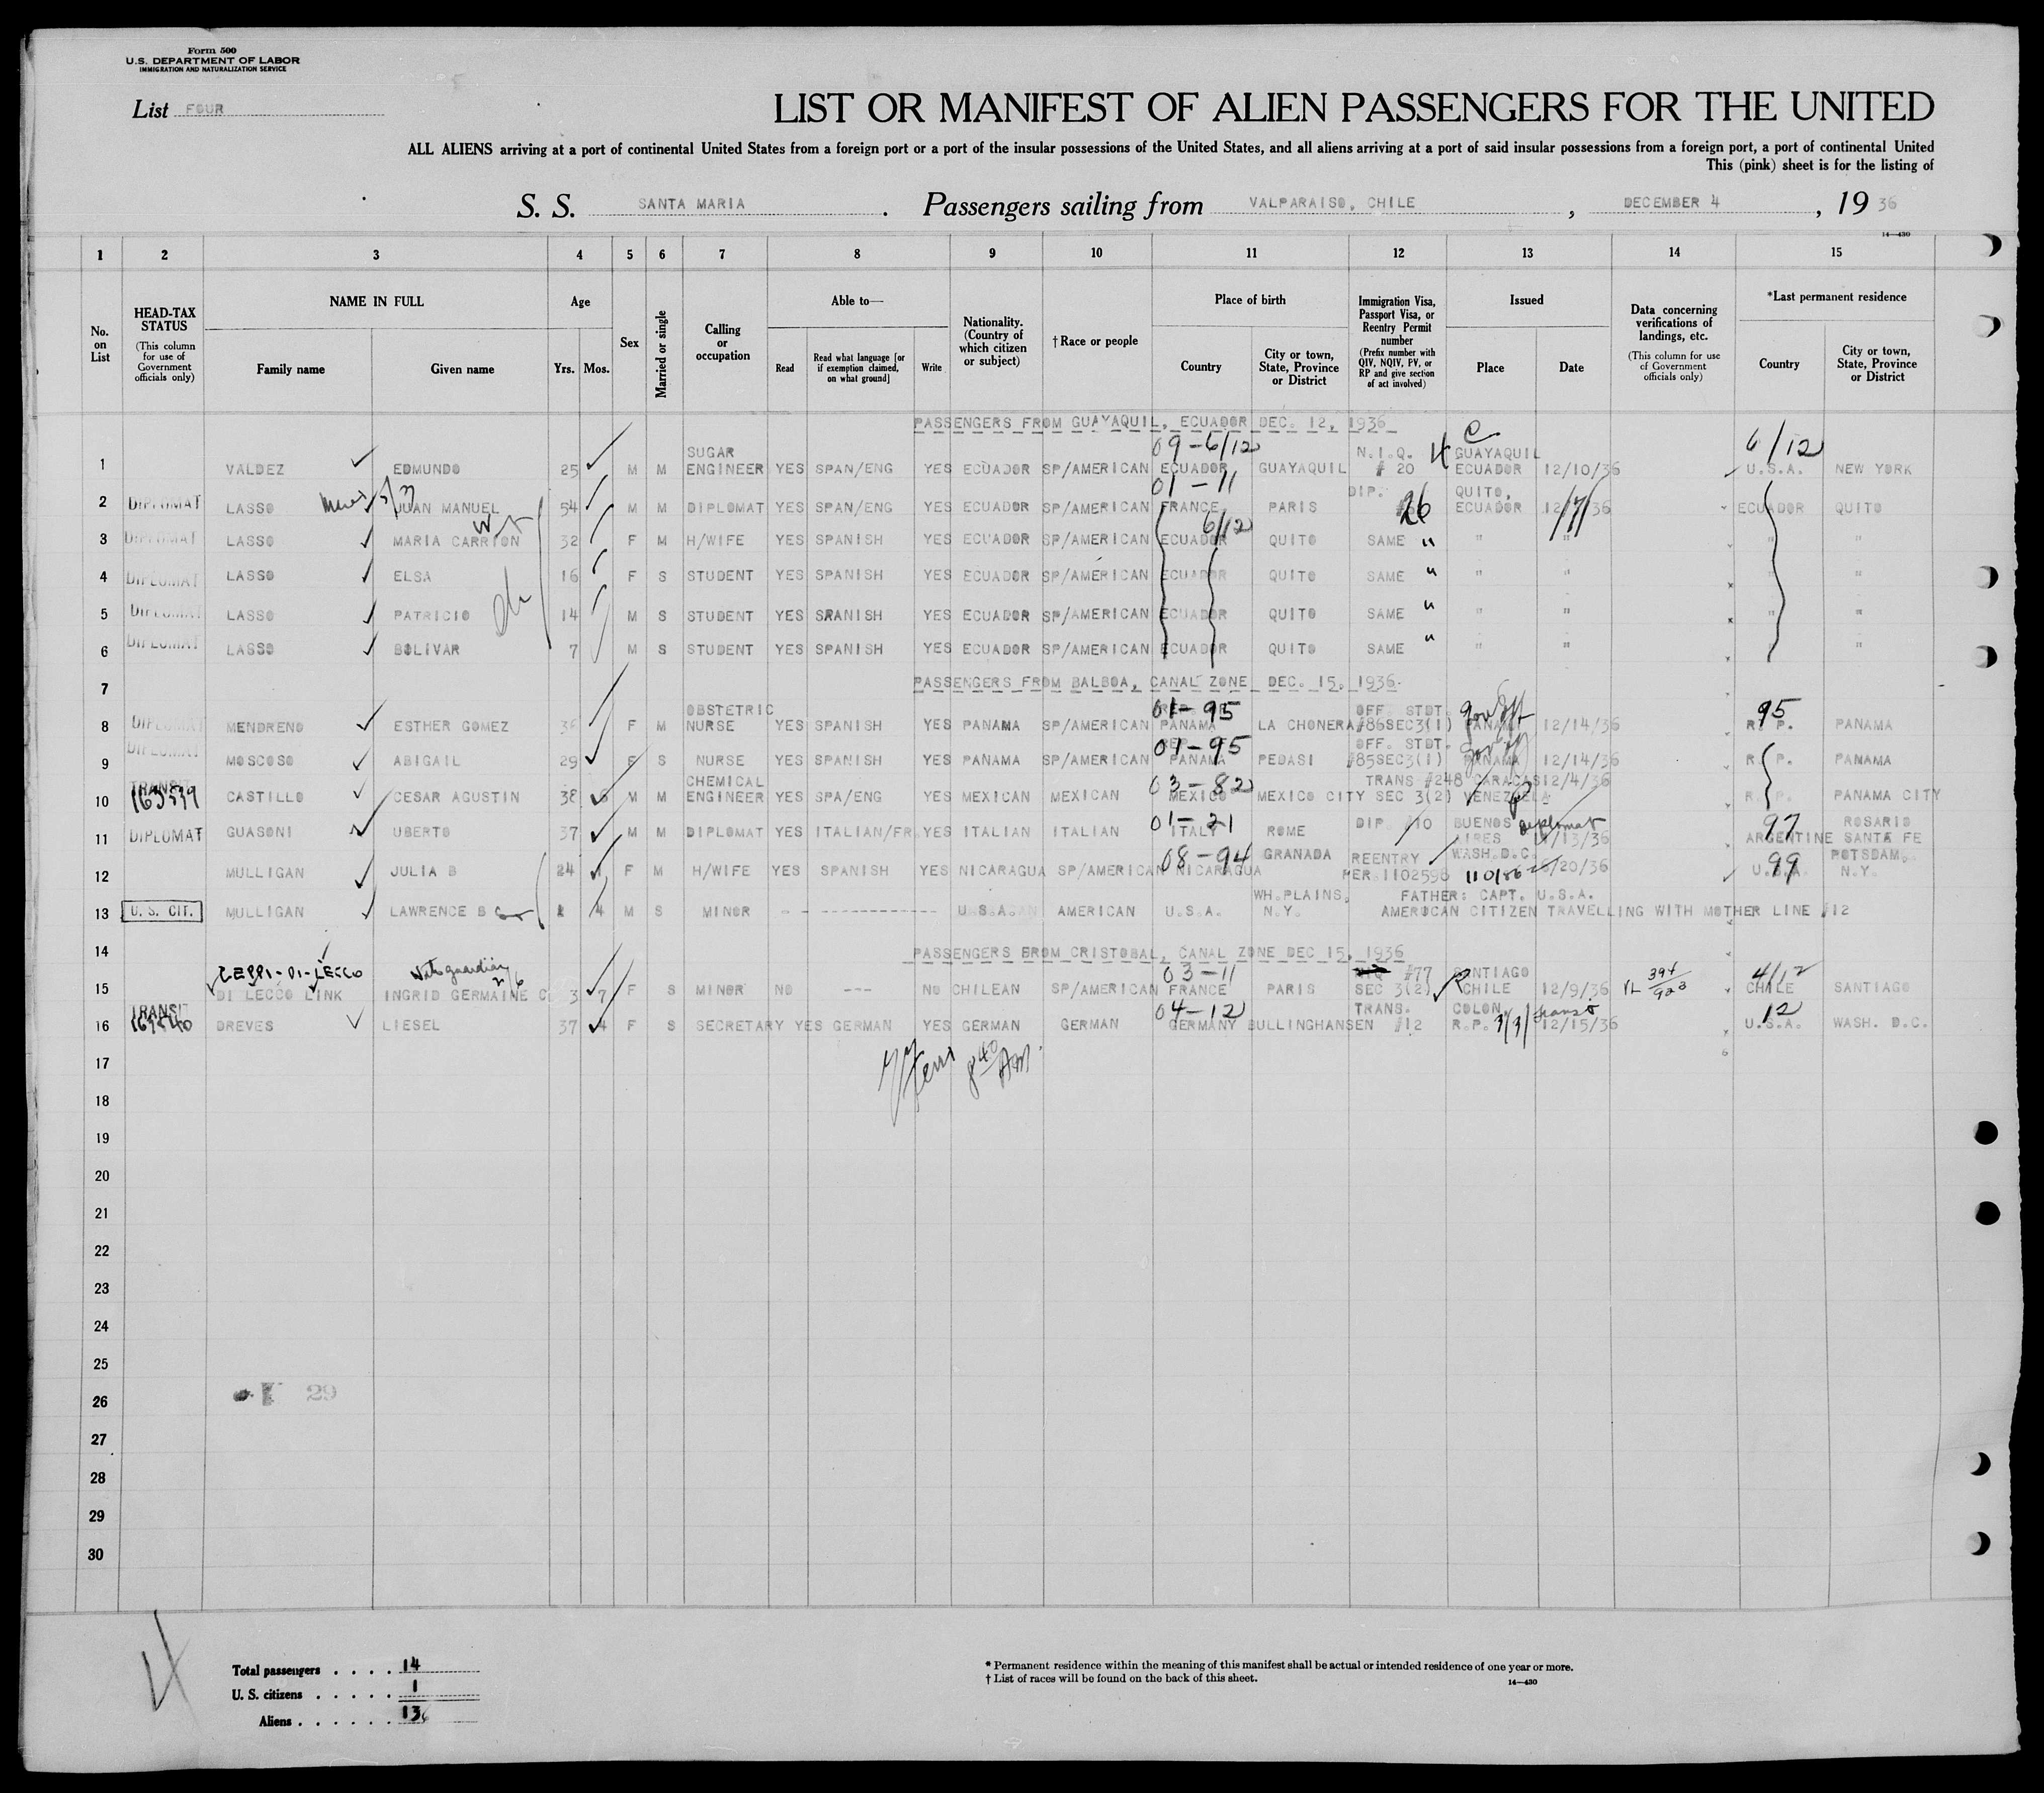 Form 500
U.S. DEPARTMENT OF LABOR
IMMIGRATION AND NATURALIZATION SERVICE
List FOUR
LIST OR MANIFEST OF ALIEN PASSENGERS FOR THE UNITED
ALL ALIENS arriving at a port of continental United States from a foreign port or a port of the insular possessions of the United States, and all aliens arriving at a port of said insular possessions from a foreign port, a port of continental United
This (pink) sheet is for the listing of
S. S. SANTA MARIA. Passengers sailing from VALPARAISO, CHILE, DECEMBER 4, 1936
14—430
1 2 3 4 5 6 7 8 9 10 11 12 13 14 15
No. on List
HEAD-TAX STATUS (This column for use of Government officials only)
NAME IN FULL
Family name Given name
Age
Yrs. Mos.
Sex
Married or single
Calling or occupation
Able to—
Read Read what language [or if exemption claimed, on what ground] Write
Nationality. (Country of which citizen or subject)
† Race or people
Place of birth
Country City or town, State, Province or District
Immigration Visa, Passport Visa, or Reentry Permit number (Prefix number with QIV, NQIV, PV, or RP and give section of act involved)
Issued
Place Date
Data concerning verifications of landings, etc. (This column for use of Government officials only)
*Last permanent residence
Country City or town, State, Province or District
PASSENGERS FROM GUAYAQUIL, ECUADOR DEC. 12, 1936
09-6/12 6/12
1 VALDEZ EDMUNDO 25 M M SUGAR ENGINEER YES SPAN/ENG YES ECUADOR SP/AMERICAN ECUADOR GUAYAQUIL N.I.Q. # 20 GUAYAQUIL ECUADOR 12/10/36 U.S.A. NEW YORK
01-11
2 DIPLOMAT LASSO JUAN MANUEL 54 M M DIPLOMAT YES SPAN/ENG YES ECUADOR SP/AMERICAN FRANCE PARIS DIP. 26 QUITO, ECUADOR 12/7/36 ECUADOR QUITO
6/12
3 DIPLOMAT LASSO MARIA CARRION 32 F M H/WIFE YES SPANISH YES ECUADOR SP/AMERICAN ECUADOR QUITO SAME " " " " "
4 DIPLOMAT LASSO ELSA 16 F S STUDENT YES SPANISH YES ECUADOR SP/AMERICAN ECUADOR QUITO SAME " " " " "
5 DIPLOMAT LASSO PATRICIO 14 M S STUDENT YES SPANISH YES ECUADOR SP/AMERICAN ECUADOR QUITO SAME " " " " "
6 DIPLOMAT LASSO BOLIVAR 7 M S STUDENT YES SPANISH YES ECUADOR SP/AMERICAN ECUADOR QUITO SAME " " " "
7 PASSENGERS FROM BALBOA, CANAL ZONE DEC. 15, 1936.
01-95 95
8 DIPLOMAT MENDRENO ESTHER GOMEZ 36 F M OBSTETRIC NURSE YES SPANISH YES PANAMA SP/AMERICAN PANAMA LA CHONERA OFF. STDT. #86SEC3(1) PANAMA 12/14/36 R.P. PANAMA
01-95
9 DIPLOMAT MOSCOSO ABIGAIL 29 F S NURSE YES SPANISH YES PANAMA SP/AMERICAN PANAMA PEDASI OFF. STDT. #85SEC3(1) PANAMA 12/14/36 R.P. PANAMA
03-82
10 TRANSIT 163539 CASTILLO CESAR AGUSTIN 38 M M CHEMICAL ENGINEER YES SPA/ENG YES MEXICAN MEXICAN MEXICO MEXICO CITY TRANS #248 SEC 3(2) CARACAS VENEZUELA 12/4/36 R.P. PANAMA CITY
01-21 97
11 DIPLOMAT GUASONI UBERTO 37 M M DIPLOMAT YES ITALIAN/FR. YES ITALIAN ITALIAN ITALY ROME DIP #10 BUENOS AIRES diplomat /13/36 ARGENTINE ROSARIO SANTA FE
08-94 99
12 MULLIGAN JULIA B 24 F M H/WIFE YES SPANISH YES NICARAGUA SP/AMERICAN NICARAGUA GRANADA REENTRY PER 1102598 WASH.D.C. /20/36 U.S.A. POTSDAM. N.Y.
13 U. S. CIT. MULLIGAN LAWRENCE B 4 M S MINOR - ------------ U.S.A. AMERICAN U.S.A. WH.PLAINS, N.Y. FATHER: CAPT. U.S.A.
AMERICAN CITIZEN TRAVELLING WITH MOTHER LINE #12
14 PASSENGERS FROM CRISTOBAL, CANAL ZONE DEC 15, 1936
ZEPPI-DI-LECCO 03-11 4/12
15 DI LECCO LINK INGRID GERMAINE C. 3 7 F S MINOR NO --- NO CHILEAN SP/AMERICAN FRANCE PARIS #77 SEC 3(2) SANTIAGO CHILE 12/9/36 CHILE SANTIAGO
04-12 12
16 TRANSIT 163540 DREVES LIESEL 37 4 F S SECRETARY YES GERMAN YES GERMAN GERMAN GERMANY BULLINGHANSEN TRANS. #12 COLON, R.P. 12/15/36 U.S.A. WASH. D.C.
17
18
19
20
21
22
23
24
25
26
29
27
28
29
30
Total passengers . . . . 14
U. S. citizens . . . . . 1
Aliens . . . . . . 13
* Permanent residence within the meaning of this manifest shall be actual or intended residence of one year or more.
† List of races will be found on the back of this sheet.
14—430